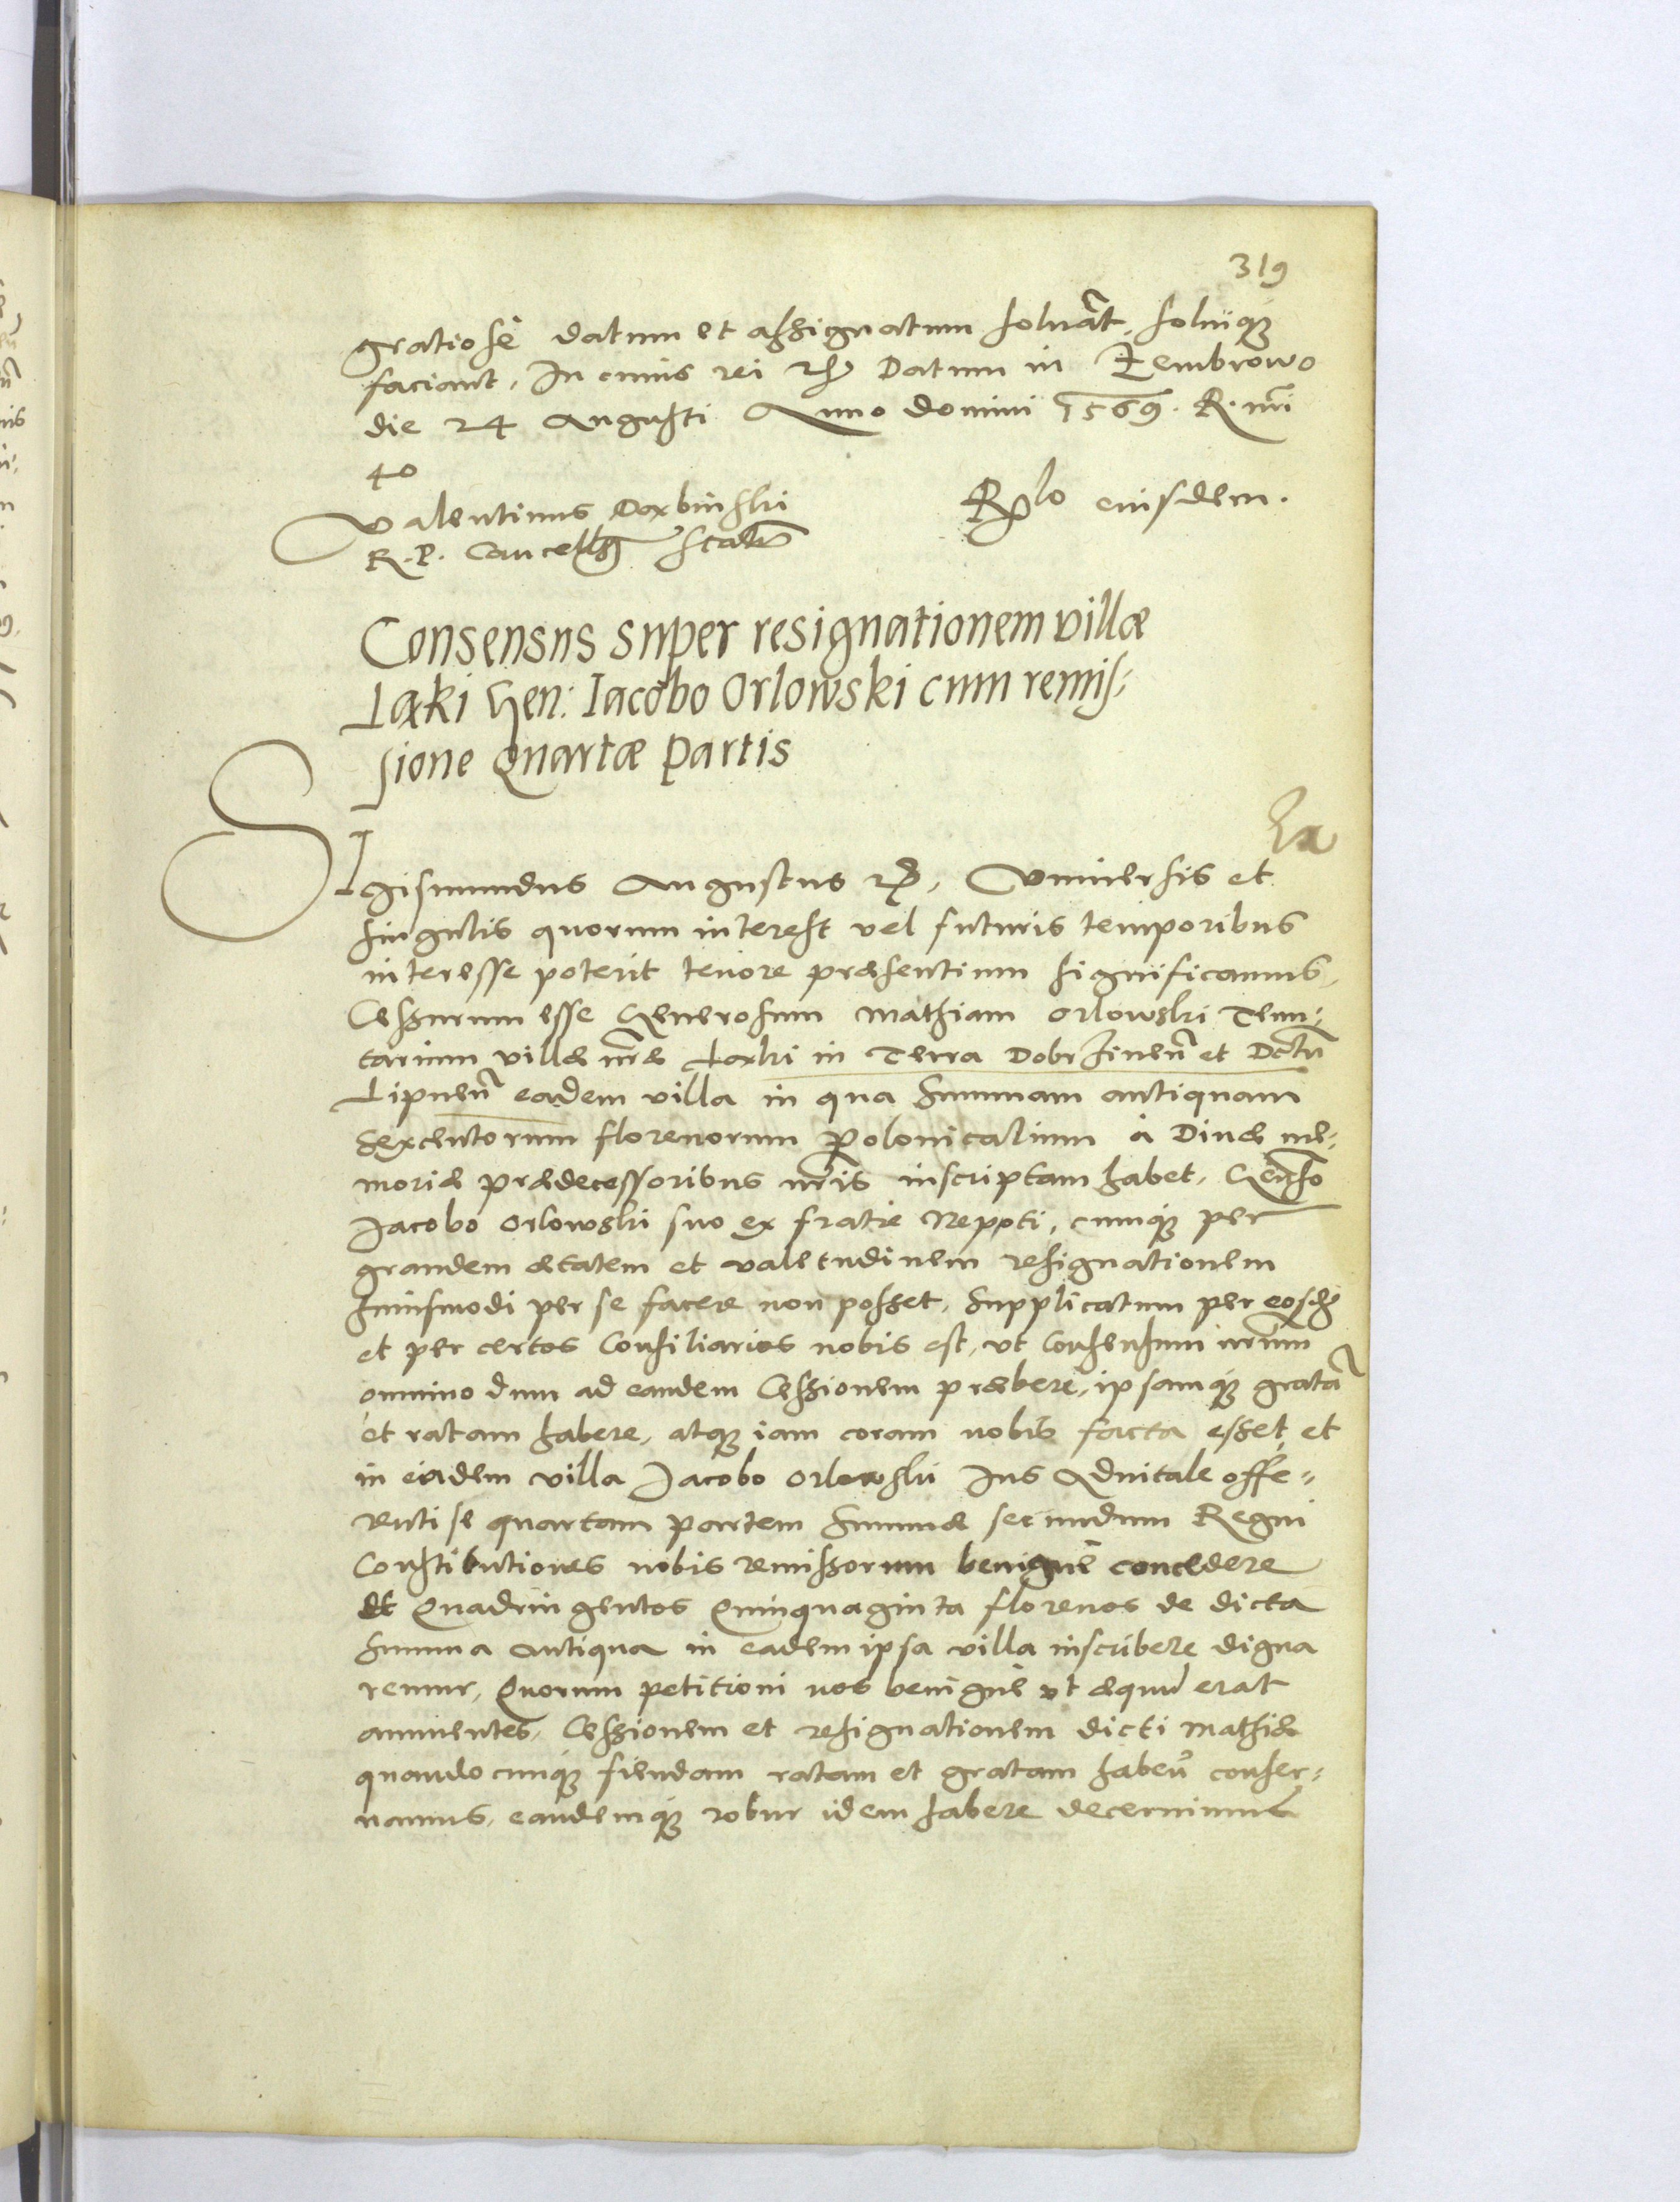 319
gratiosè datum et assignatum soluāt, soluiq̃
faciant, In cuius rei Datum in Zembrowo
die 24 Augusti Anno domini 1569. R. nri
40
Valentinus Dᶏbinski
R. P. Cancell
Rlo eiusdem.
Consensus super resignationem villæ
Łᶏki Gen: Iacobo Orlowski cum remis:
sione Quartæ Partis
SIgismundus Augustus Vniuersis et
singulis quorum interest vel futuris temporibus
interesse poterit tenore præsentium significamus,
Cessurum esse Generosum Mathiam Orlowski Tenu:
tarium villæ nræ Łᶏki in Terra Dobrzinen̄ et Dctu
Lipnen̄ eadem villa in qua Summam antiquam
Sexcentorum florenorum Polonicalium à Diuæ me:
moriæ prædecessoribus nris inscriptam habet, Geñso
Jacobo Orlowski suo ex fratre Nepoti, cumq̃ per
grandem ætatem et valetudinem resignationem
huiusmodi per se facere non posset, Supplicatum per eosd
et per certos Consiliarios nobis est, vt Consensum nrum
omnino dum ad eandem Cessionem præbere, ipsamq̃ gratã
et ratam habere, atq̃ iam coram nobis facta esset, et
in eadem villa Jacobo Orlowski Ius Aduitale offe:
renti se quartam partem Summæ secundum Regni
Constitutiones nobis remissorum benignè concedere
et Quadringentos Quinquaginta florenos de dicta
Summa antiqua in eadem ipsa villa inscribere digna
remur, Quorum petitioni nos benignè vt æquũ erat
annuentes, Cessionem et resignationem dicti Mathiæ
quandocunq̃ fiendam ratam et gratam haben̄ conser:
uamus, eandemq̃ robur idem habere decernimus